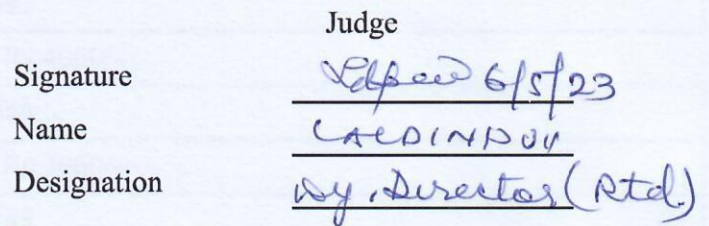 Judge
Signature 6/5/23
Name
Designation Dy. Director (Rtd.)